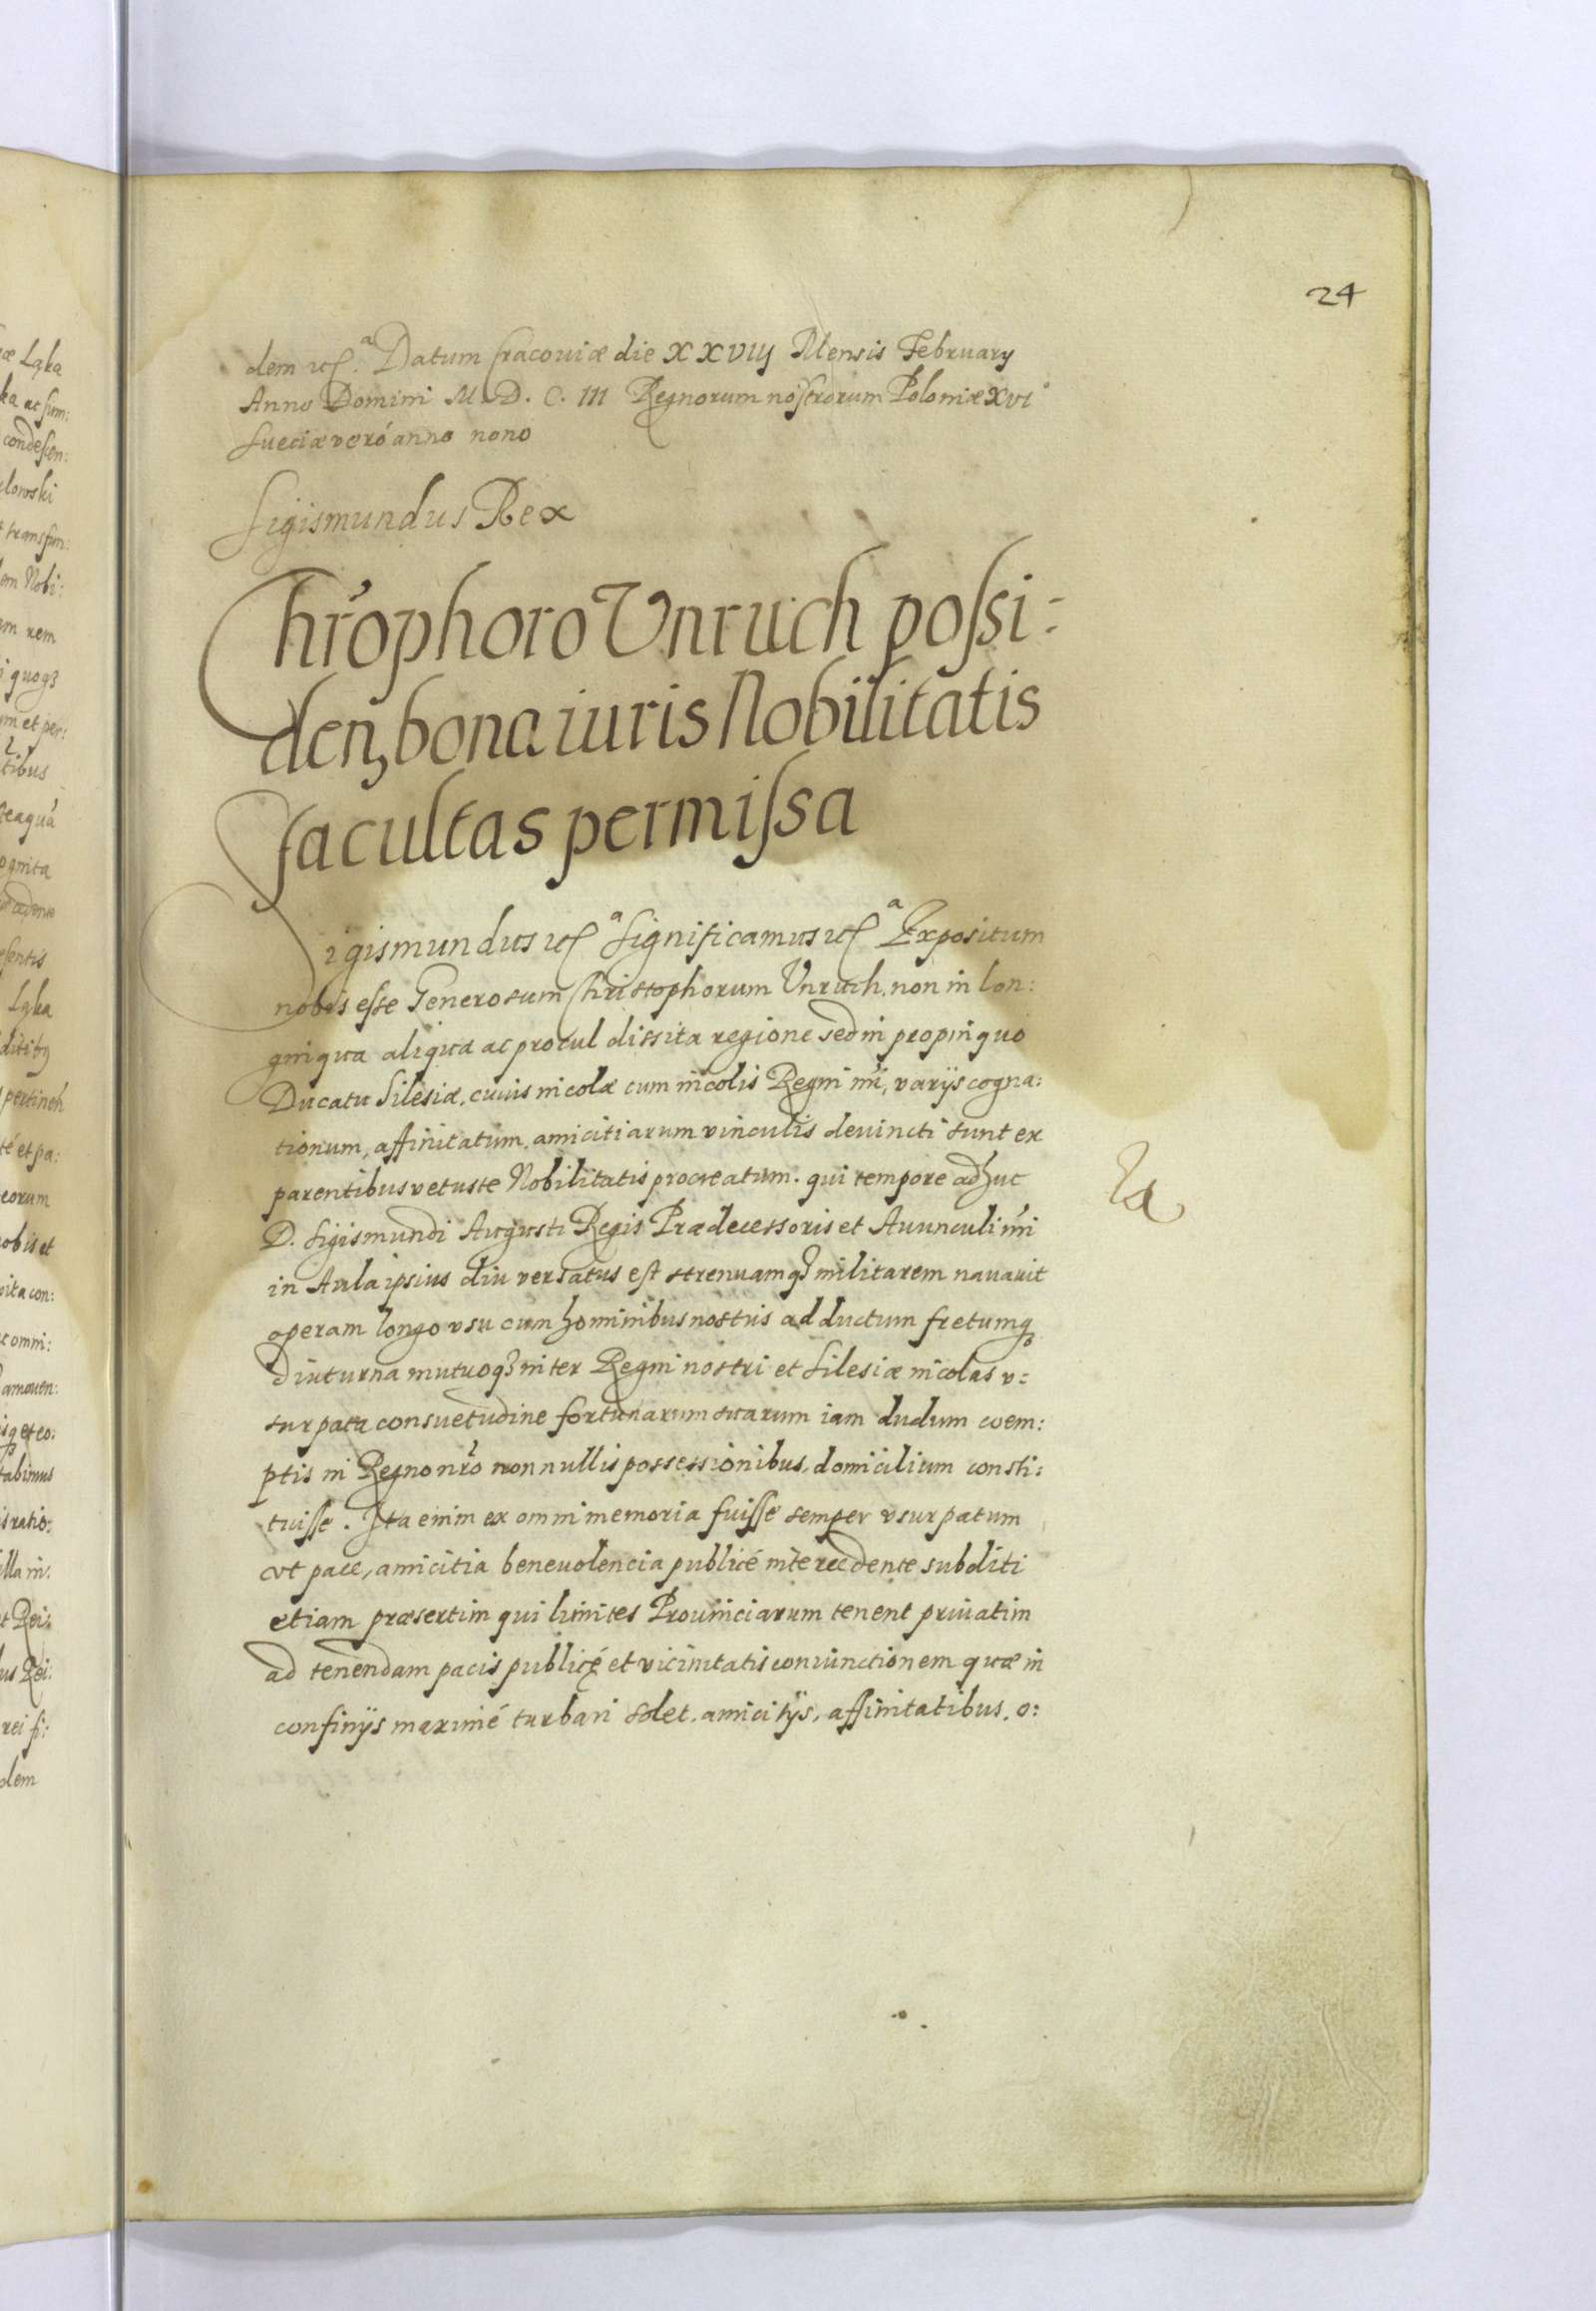 24
dem etc.a Datum Cracouiæ die XXVIIJ Mensis February
Anno Domini M.D.C.III Regnorum nostrorum Poloniæ XVIo
Sueciæ veró anno nono
Sigismundus Rex
Chr̃ophoro Vnruch possi:
den̄ bona iuris Nobilitatis
facultas permissa
Sigismundus etc.a Significamus etc.a Expositum
nobis esse Generosum Christophorum Vnruch, non in lon:
ginqua aliqua ac procul dissita regione sed in propinquo
Ducatu Silesiæ, cuius incolæ cum incolis Regni nr̃i, varijs cogna:
tionum, affinitatum, amicitiarum vinculis deuincti sunt ex
parentibus vetuste Nobilitatis procreatum. qui tempore adhuc
D. Sigismundi Augusti Regis Prædecessoris et Auunculi nr̃i
in Aula ipsius diu versatus est strenuamq3 militarem nauauit
operam longo vsu cum hominibus nostris adductum fretumq3
diuturna mutuoq3 inter Regni nostri et Silesiæ incolas v:
surpata consuetudine fortunarum suarum iam dudum coem:
ptis in Regno nr̃o nonnullis possessionibus, domicilium consti:
tuisse. Ita enim ex omni memoria fuisse semper vsurpatum
vt pace, amicitia beneuolencia publicé intercedente subditi
etiam præsertim qui limites Prouinciarum tenent priuatim
ad tenendam pacis publicę et vicinitatis coniunctionem quæ in
confinijs maximé turbari solet, amicitijs, affinitatibus, o: